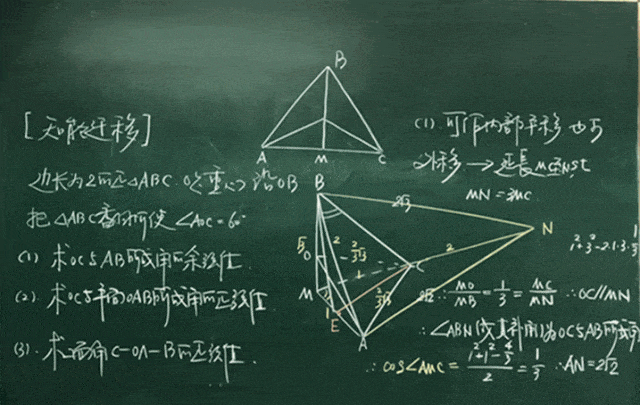 B
A M C
[知能迁移]
边长为2的正△ABC.O是重心,沿OB
把△ABC翻折使∠AOC=60°
(1) 求OC与AB所成角的余弦值.
(2). 求OC与平面OAB所成角的正弦值.
(3). 求二面角C-OA-B的正弦值.
(1). 可作内部平移 也可
外移 → 延長MC至N st
MN=3MC
B
2√3
N
2
2
O
C
M
1
1
E
A
2√2
1²+3²-2·1·3·1/3
∴ MO/MB = 1/3 = MC/MN ∴OC//MN
∴∠ABN(或其补角)为OC与AB所成角
∴cos∠AMC = (1²+1²-4/3)/2 = 1/3 ∴AN=2√2